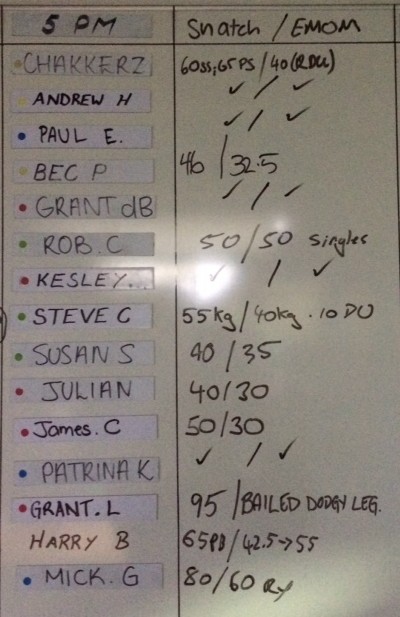 5 PM Snatch / EMOM
CHAKKERZ 60SS; 65PS / 40 (RDU)
ANDREW H ✓ / ✓
PAUL E. ✓ / ✓
BEC P 46 / 32.5
GRANT dB ✓ / ✓
ROB. C 50/50 singles
KESLEY... ✓ / ✓
STEVE C 55kg / 40kg . 10 DU
SUSAN S 40 / 35
JULIAN 40/30
James. C 50/30
PATRINA K ✓ / ✓
GRANT. L 95 / BAILED DODGY LEG.
HARRY B 65PB / 42.5→55
MICK. G 80/60 Rx